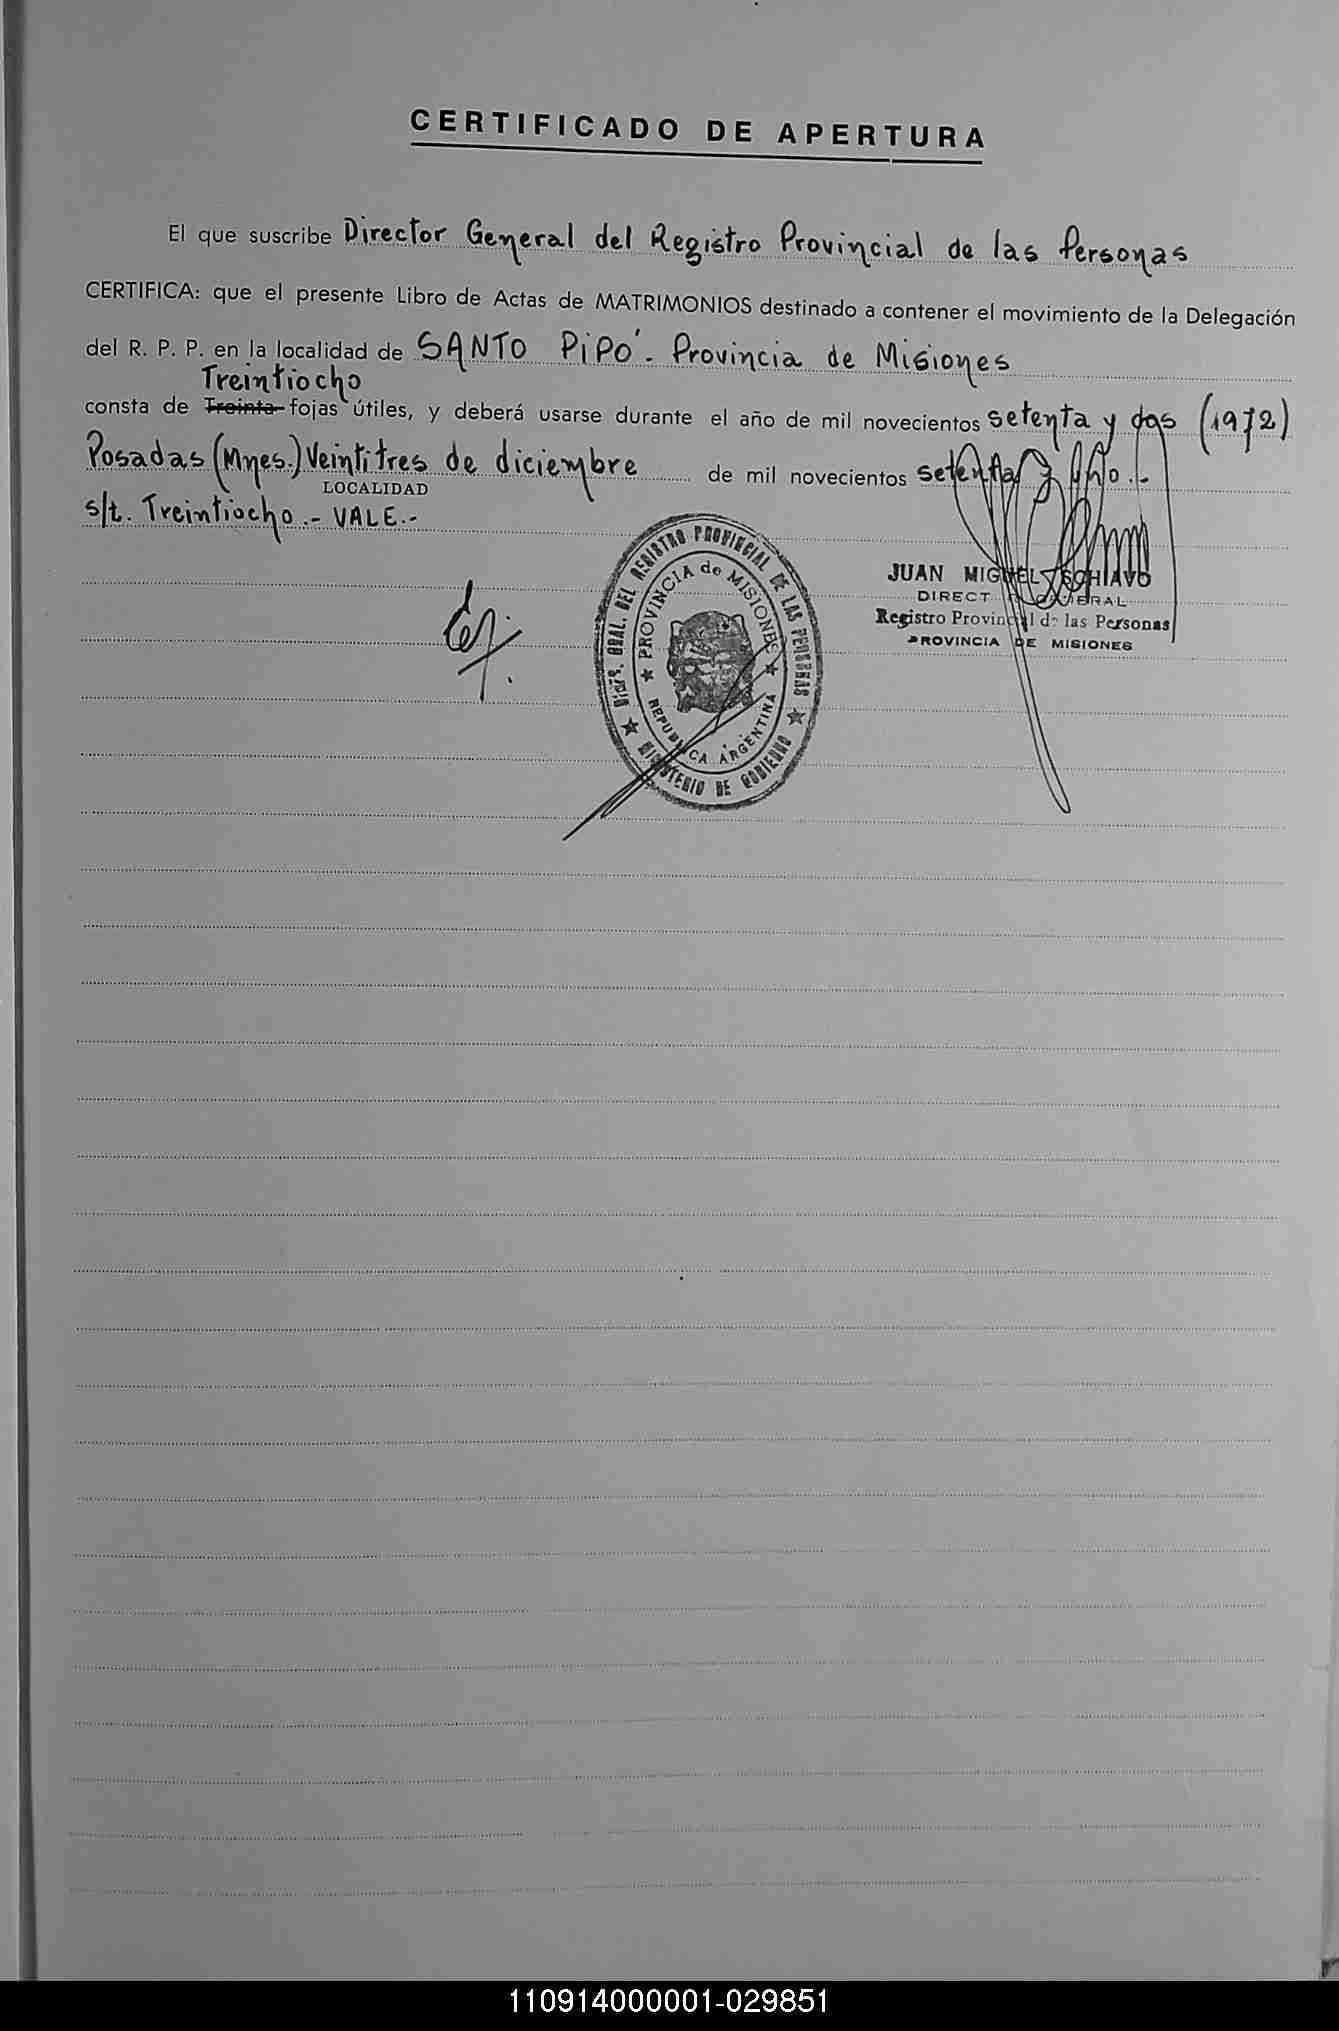 CERTIFICADO DE APERTURA
El que suscribe Director General del Registro Provincial de las Personas
CERTIFICA: que el presente Libro de Actas de MATRIMONIOS destinado a contener el movimiento de la Delegación
del R. P. P. en la localidad de SANTO PIPÓ.- Provincia de Misiones
Treintiocho
consta de Treinta fojas útiles, y deberá usarse durante el año de mil novecientos setenta y dos (1972)
Posadas (Mnes.) Veintitres de diciembre de mil novecientos setenta y uno.-
LOCALIDAD
s/t. Treintiocho.- VALE.-
DIREC. GRAL. DEL REGISTRO PROVINCIAL DE LAS PERSONAS
MINISTERIO DE GOBIERNO
PROVINCIA de MISIONES
REPUBLICA ARGENTINA
JUAN MIGUEL SCHIAVO
DIRECTOR GENERAL
Registro Provincial de las Personas
PROVINCIA DE MISIONES
110914000001-029851